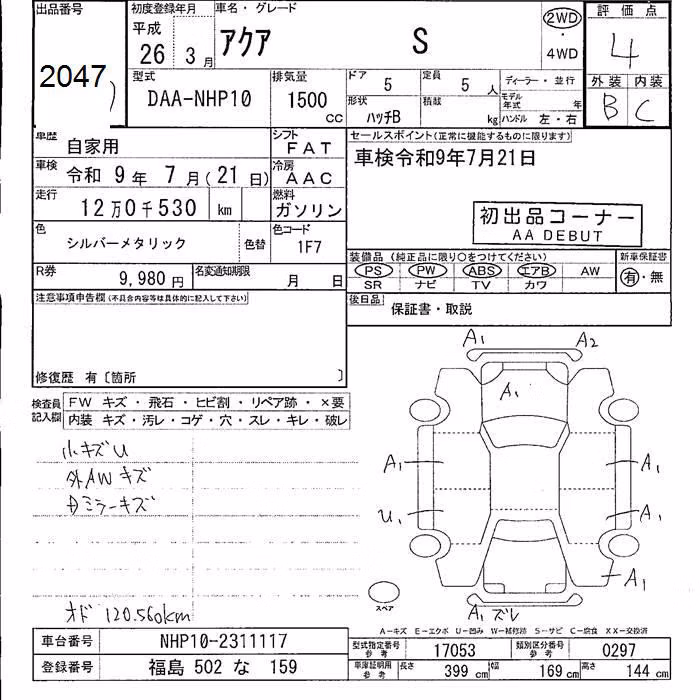 出品番号
2047
初度登録年月
平成
26 3 月
車名・グレード
アクア S
2WD
・
4WD
評価点
4
外装 内装
B C
型式
DAA-NHP10
排気量
1500
CC
ドア 5
定員 5 人
形状
ハッチB
積載
kg
ディーラー・並行
モデル年式 年
ハンドル 左・右
車歴 自家用
シフト
FAT
車検 令和 9 年 7 月(21 日)
冷房
AAC
走行 12 万 0 千 530 km
燃料
ガソリン
色 シルバーメタリック 色替
色コード
1F7
セールスポイント(正常に機能するものに限ります)
車検令和9年7月21日
初出品コーナー
AA DEBUT
R券 9,980 円
名変通知期限 月 日
装備品 (純正品に限り○をつけてください)
PS PW ABS エアB AW
SR ナビ TV カワ
新車保証書
有・無
後日品 保証書・取説
注意事項申告欄(不具合内容等は具体的に記入して下さい)
修復歴 有〔箇所 〕
検査員記入欄
FW キズ・飛石・ヒビ割・リペア跡・×要
内装 キズ・汚レ・コゲ・穴・スレ・キレ・破レ
小キズU
外AWキズ
ミラーキズ
オド 120.560km
A1 A2
A1
A1 A1
U1 A1
A1
A1 ズレ
スペア
A-キズ E-エクボ U-凹み W-補修跡 S-サビ C-腐食 XX-交換済
車台番号 NHP10-2311117
登録番号 福島 502 な 159
型式指定番号
参考
17053
類別区分番号
参考
0297
車庫証明用
参考
長さ 399 cm 幅 169 cm 高さ 144 cm